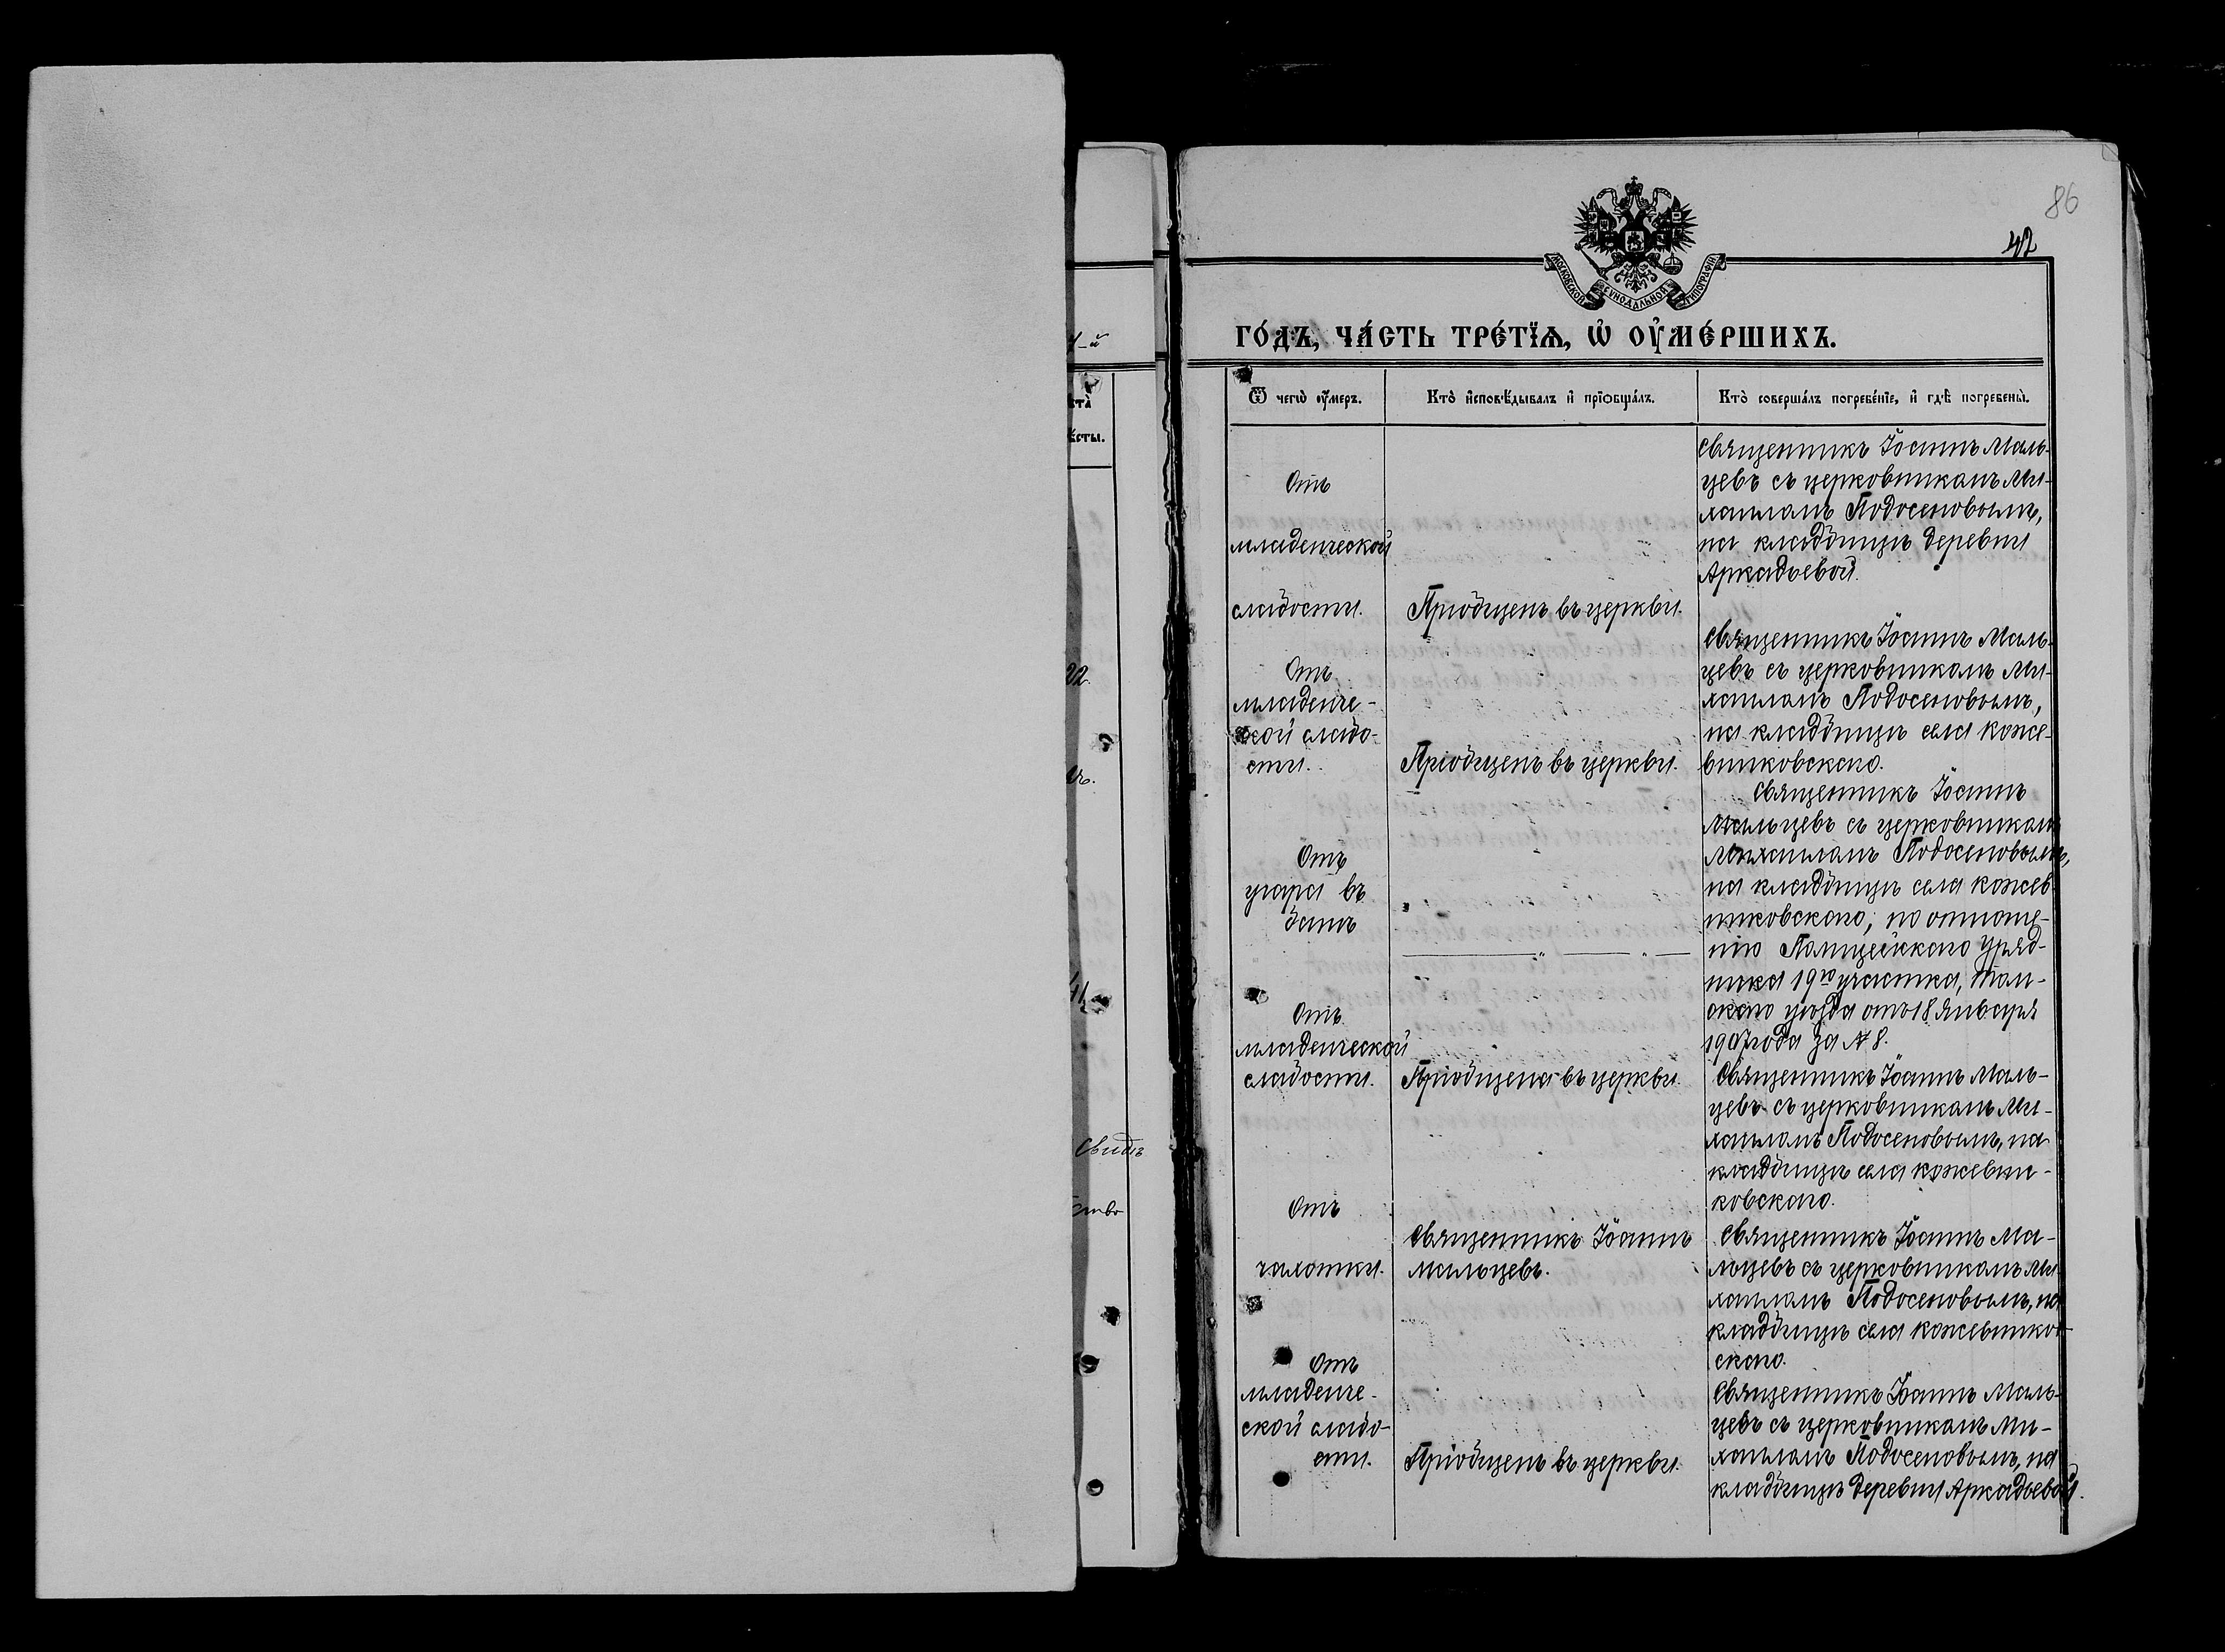 86
42
МОСКОВСКОЙ СѴНОДАЛЬНОЙ ТИПОГРАФІИ
ГО́ДЪ, ЧА́СТЬ ТРЕ́ТЇѦ, Ѡ҆ ОУ҆МЕ́РШИХЪ.
Ѿ чегѡ̀ оу҆́меръ.
Кто̀ и҆сповѣ́дывалъ и҆ прїѡбща́лъ.
Кто̀ соверша́лъ погребе́нїе, и҆ гдѣ̀ погребены̀.
1-й
ѣсты.
22.
Свидѣ
ство
Отъ
младенческой
слабости.
Пріобщенъ въ церкви.
Священникъ Іоаннъ Маль-
цевъ съ церковникомъ Ми-
хаиломъ Подосеновымъ,
на кладбищѣ деревни
Аркадьевой.
Отъ
младенче-
ской слабо-
сти.
Пріобщенъ въ церкви.
Священникъ Іоаннъ Маль-
цевъ съ церковникомъ Ми-
хаиломъ Подосеновымъ,
на кладбищѣ села Коже-
вниковского.
Отъ
угара въ
банѣ
Священникъ Іоаннъ
Мальцевъ съ церковникомъ
Михаиломъ Подосеновымъ,
на кладбищѣ села Кожев-
никовского, по отноше-
нію Полицейскаго Уряд-
ника 19го участка, Том-
скаго уѣзда отъ 18 Января
1907 года за № 8.
Отъ
младенческой
слабости.
Пріобщена въ церкви.
Священникъ Іоаннъ Маль-
цевъ съ церковникомъ Ми-
хаиломъ Подосеновымъ, на
кладбищѣ села Кожевни-
ковского.
Отъ
чахотки.
Священникъ Іоаннъ
Мальцевъ.
Священникъ Іоаннъ Ма-
льцевъ съ церковникомъ Ми-
хаиломъ Подосеновымъ, на
кладбищѣ села Кожевнико-
ского.
Отъ
младенче-
ской слабо-
сти.
Пріобщенъ въ церкви.
Священникъ Іоаннъ Маль-
цевъ съ церковникомъ Ми-
хаиломъ Подосеновымъ, на
кладбищѣ деревни Аркадьевой.